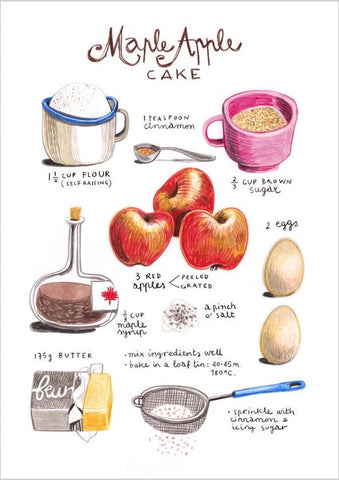 Maple Apple
CAKE
1 TEASPOON
cinnamon
1 1/2 CUP FLOUR
(SELF RAISING)
2/3 CUP BROWN
sugar
2 eggs
3 RED
apples
PEELED
GRATED
1/3 CUP
maple
syrup
a pinch
o' salt
175g BUTTER
• mix ingredients well
• bake in a loaf tin: 40-45m
180°C.
• sprinkle with
cinnamon &
icing sugar